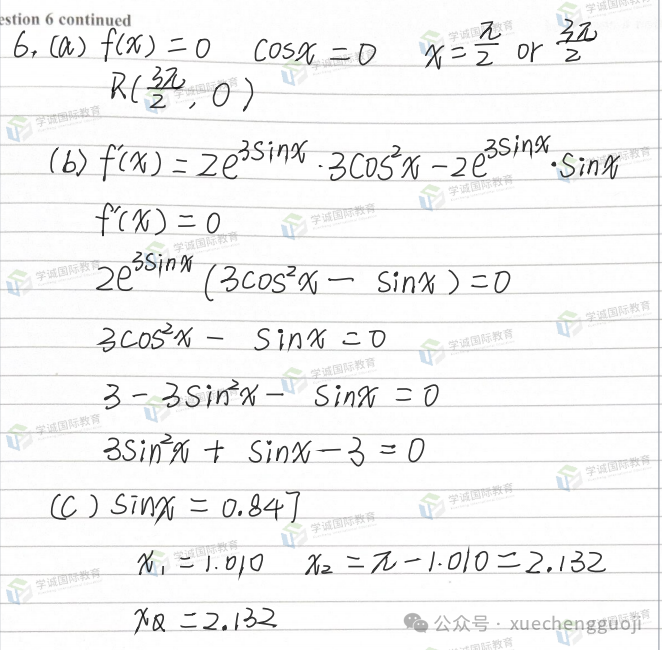 estion 6 continued
6. (a) f(x) = 0 cosx = 0 x = π/2 or 3π/2
R(3π/2, 0)
(b) f'(x) = 2e^{3sinx} · 3cos²x - 2e^{3sinx} · sinx
f'(x) = 0
2e^{3sinx} (3cos²x - sinx) = 0
3cos²x - sinx = 0
3 - 3sin²x - sinx = 0
3sin²x + sinx - 3 = 0
(C) sinx = 0.847
x₁ = 1.010 x₂ = π - 1.010 = 2.132
xQ = 2.132
公众号 · xuechengguoji
学诚国际教育